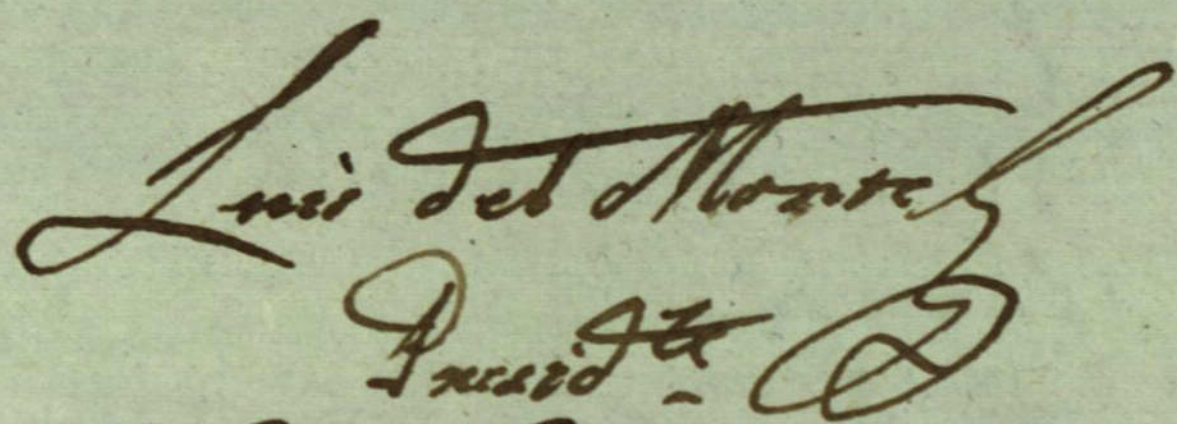 Luis del Monte
Presid.te